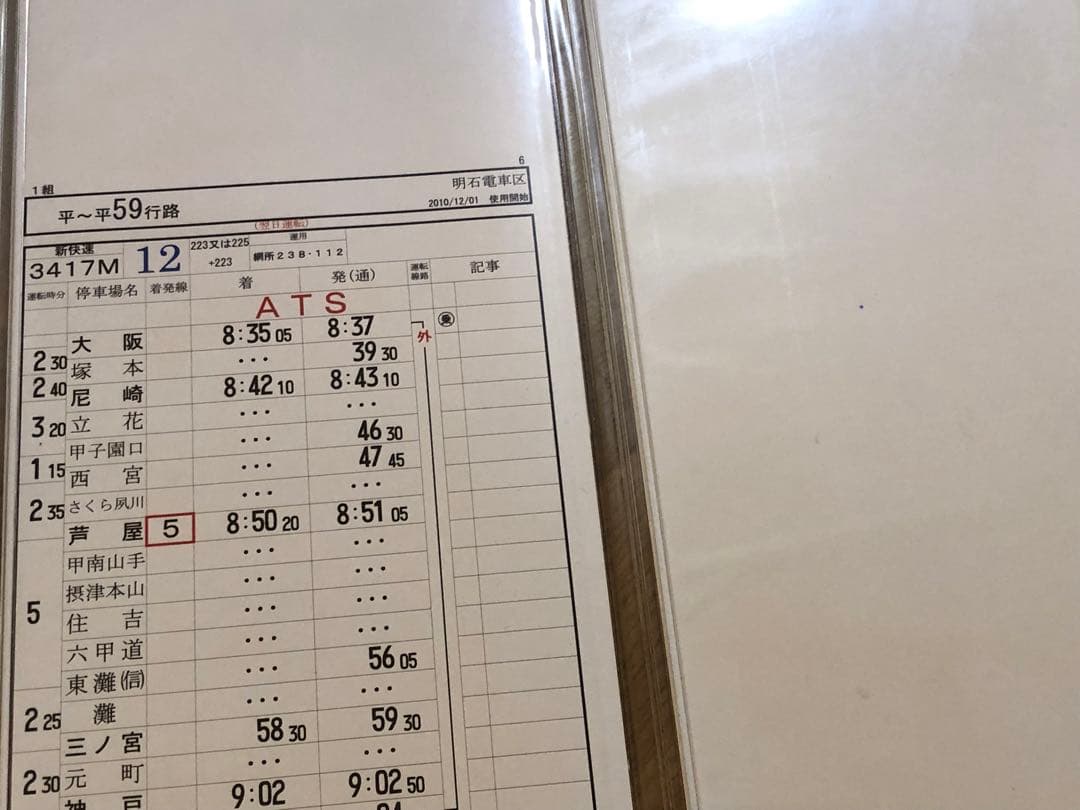 6
1組
明石電車区
平～平59行路
2010/12/01 使用開始
(翌日運転)
新快速
3417M 12 223又は225 +223 運用 網所23B・112
運転時分 停車場名 着発線 着 発(通) 運転線路 記事
ATS
大阪 8:35 05 8:37 外 乗
2 30
塚本 ・・・ 39 30
2 40
尼崎 8:42 10 8:43 10
立花 ・・・ ・・・
3 20
甲子園口 ・・・ 46 30
1 15
西宮 ・・・ 47 45
さくら夙川 ・・・ ・・・
2 35
芦屋 5 8:50 20 8:51 05
甲南山手 ・・・ ・・・
摂津本山 ・・・ ・・・
5
住吉 ・・・ ・・・
六甲道 ・・・ ・・・
東灘(信) ・・・ 56 05
灘 ・・・ ・・・
2 25
三ノ宮 58 30 59 30
元町 ・・・ ・・・
2 30
神戸 9:02 9:02 50